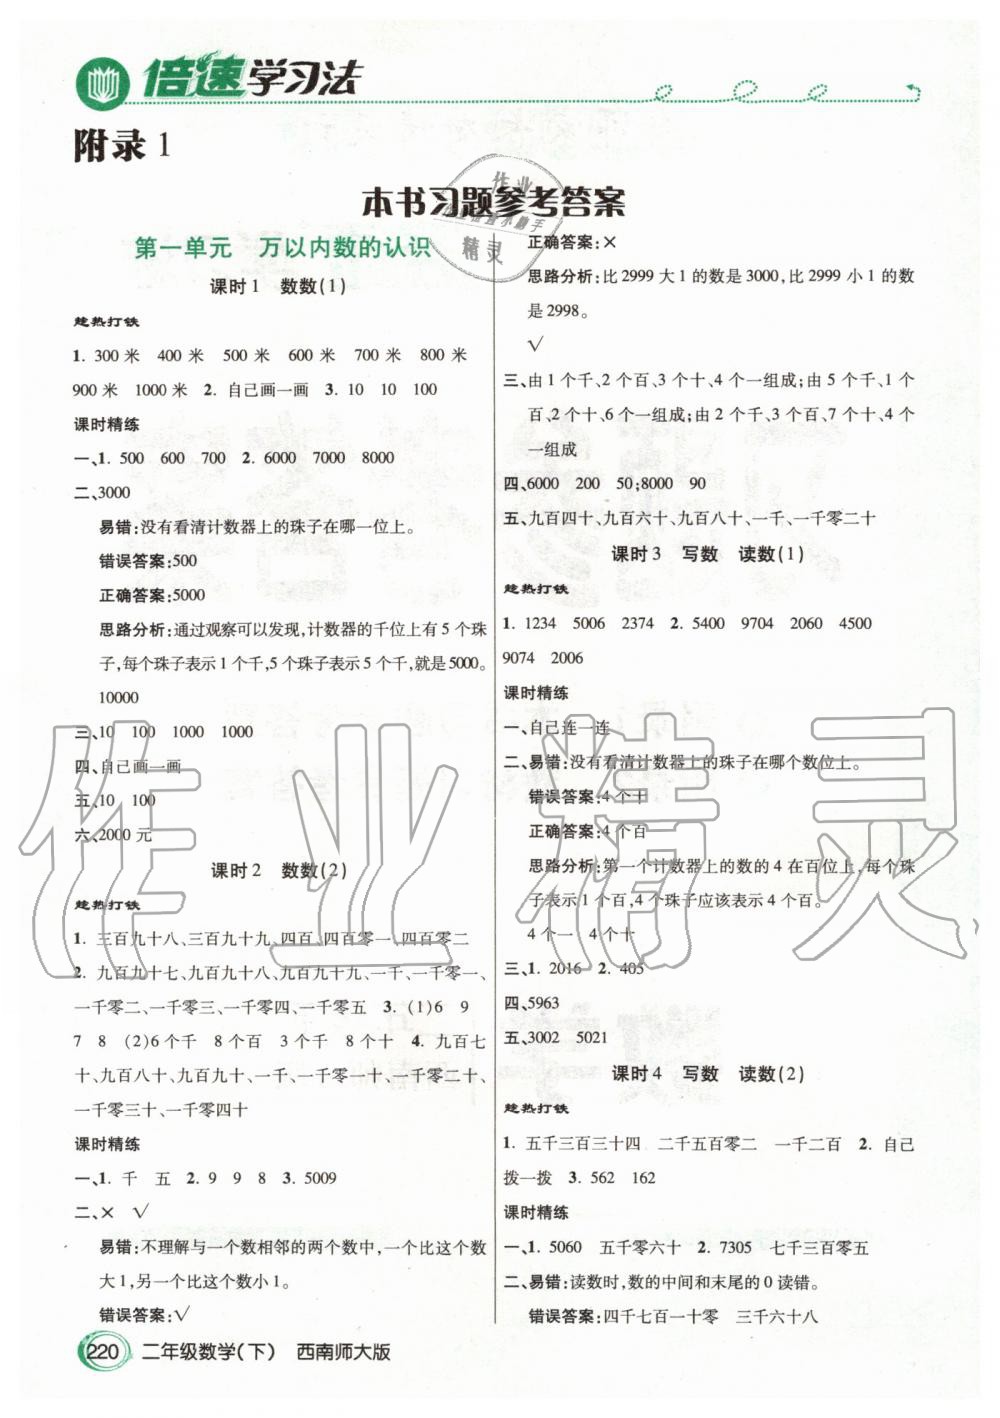 倍速学习法
附录 1
本书习题参考答案
第一单元 万以内数的认识
课时1 数数(1)
趁热打铁
1. 300 米 400 米 500 米 600 米 700 米 800 米
900 米 1000 米 2. 自己画一画 3. 10 10 100
课时精练
一、1. 500 600 700 2. 6000 7000 8000
二、3000
易错:没有看清计数器上的珠子在哪一位上。
错误答案:500
正确答案:5000
思路分析:通过观察可以发现,计数器的千位上有 5 个珠
子,每个珠子表示 1 个千,5 个珠子表示 5 个千,就是 5000。
10000
三、10 100 1000 1000
四、自己画一画
五、10 100
六、2000 元
课时2 数数(2)
趁热打铁
1. 三百九十八、三百九十九、四百、四百零一、四百零二
2. 九百九十七、九百九十八、九百九十九、一千、一千零一、
一千零二、一千零三、一千零四、一千零五 3. (1)6 9
7 8 (2)6个千 9个百 3个千 8个十 4. 九百七
十、九百八十、九百九十、一千、一千零一十、一千零二十、
一千零三十、一千零四十
课时精练
一、1. 千 五 2. 9 9 8 3. 5009
二、× √
易错:不理解与一个数相邻的两个数中,一个比这个数
大 1,另一个比这个数小 1。
错误答案:√
正确答案:×
思路分析:比 2999 大 1 的数是 3000,比 2999 小 1 的数
是 2998。
√
三、由 1 个千、2 个百、3 个十、4 个一组成;由 5 个千、1 个
百、2 个十、6 个一组成;由 2 个千、3 个百、7 个十、4 个
一组成
四、6000 200 50;8000 90
五、九百四十、九百六十、九百八十、一千、一千零二十
课时3 写数 读数(1)
趁热打铁
1. 1234 5006 2374 2. 5400 9704 2060 4500
9074 2006
课时精练
一、自己连一连
二、易错:没有看清计数器上的珠子在哪个数位上。
错误答案:4 个十
正确答案:4 个百
思路分析:第一个计数器上的数的 4 在百位上,每个珠
子表示 1 个百,4 个珠子应该表示 4 个百。
4 个一 4 个十
三、1. 2016 2. 405
四、5963
五、3002 5021
课时4 写数 读数(2)
趁热打铁
1. 五千三百三十四 二千五百零二 一千二百 2. 自己
拨一拨 3. 562 162
课时精练
一、1. 5060 五千零六十 2. 7305 七千三百零五
二、易错:读数时,数的中间和末尾的 0 读错。
错误答案:四千七百一十零 三千六十八
220 二年级数学(下) 西南师大版
作业精灵